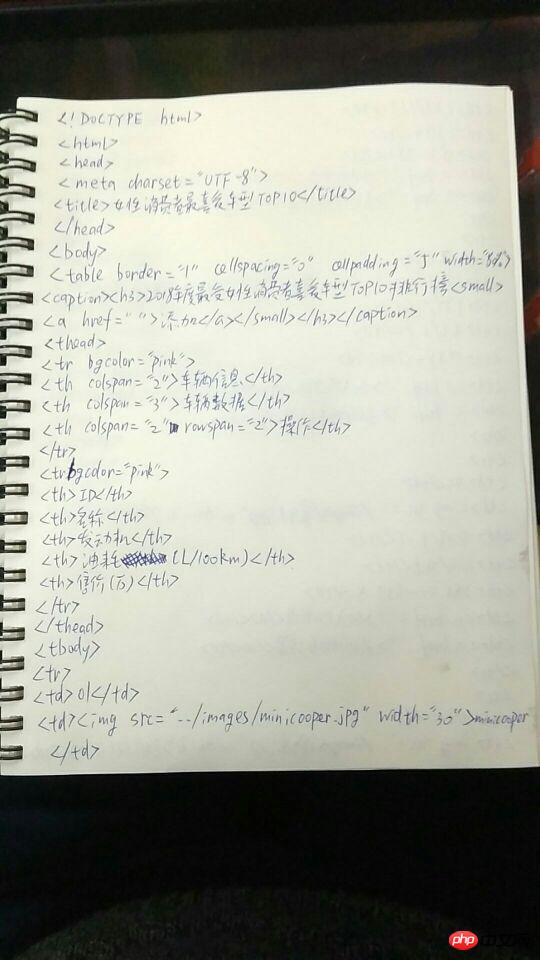 <!DOCTYPE html>
<html>
<head>
<meta charset="UTF-8">
<title>女性消费者最喜爱车型TOP10</title>
</head>
<body>
<table border="1" cellspacing="0" cellpadding="5" width="80%">
<caption><h3>2018年度最受女性消费者喜爱车型TOP10排行榜<small>
<a href="">添加</a></small></h3></caption>
<thead>
<tr bgcolor="pink">
<th colspan="2">车辆信息</th>
<th colspan="3">车辆数据</th>
<th colspan="2" rowspan="2">操作</th>
</tr>
<tr bgcolor="pink">
<th>ID</th>
<th>名称</th>
<th>发动机</th>
<th>油耗(L/100km)</th>
<th>售价(万)</th>
</tr>
</thead>
<tbody>
<tr>
<td>01</td>
<td><img src="../images/minicooper.jpg" width="30">minicooper
</td>
php 中文网